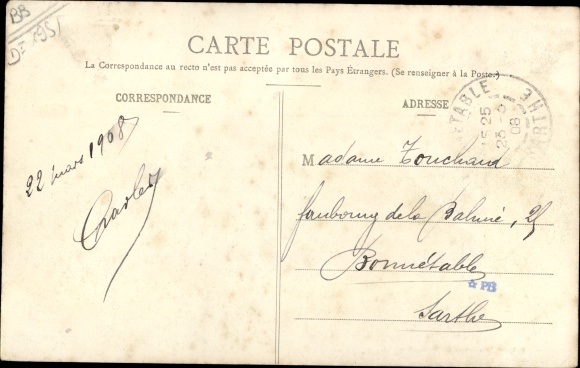 BB
CARTE POSTALE
La Correspondance au recto n'est pas acceptée par tous les Pays Etrangers. (Se renseigner à la Poste.)
CORRESPONDANCE
ADRESSE
22 mars 1908
Charles
Madame Touchard
faubourg de la
Bonnétable
Sarthe
ETABLE
15 25
08
SARTHE
PB